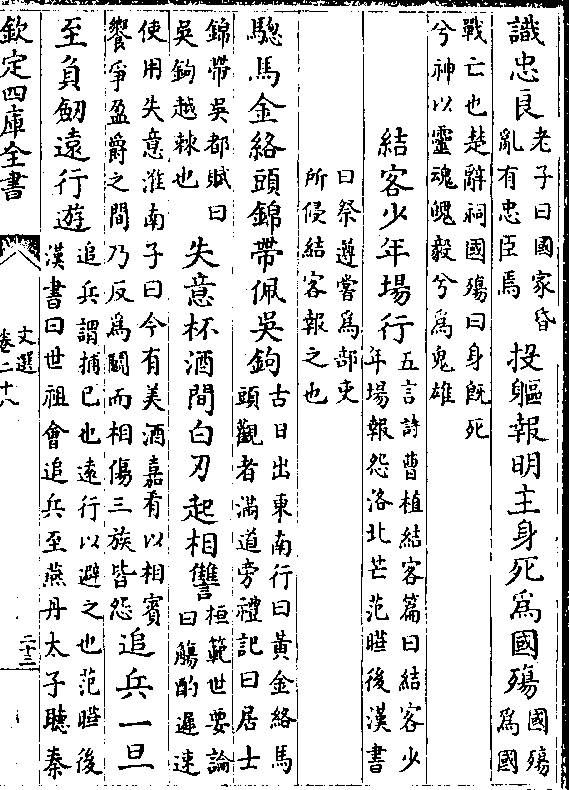 識忠良老子曰國家昏亂有忠臣焉投軀報明主身死爲國殤國殤爲國
戰亡也楚辭祠國殤曰身旣死兮神以靈魂魄毅兮爲鬼雄
結客少年場行五言詩曹植結客篇曰結客少年場報怨洛北芒范曄後漢書
曰祭遵嘗爲部吏所侵結客報之也
驄馬金絡頭錦帶佩吳鉤古日出東南行曰黃金絡馬頭觀者滿道旁禮記曰居士
錦帶吳都賦曰吳鉤越棘也失意杯酒間白刃起相讐桓範世要論曰觴酌遲速
使用失意淮南子曰今有美酒嘉肴以相賓饗爭盈爵之間乃反爲鬭而相傷三族皆怨追兵一旦
至負劒遠行遊追兵謂捕已也遠行以避之也范曄後漢書曰世祖會追兵至燕丹太子聽秦
欽定四庫全書
文選
卷二十八
二十三